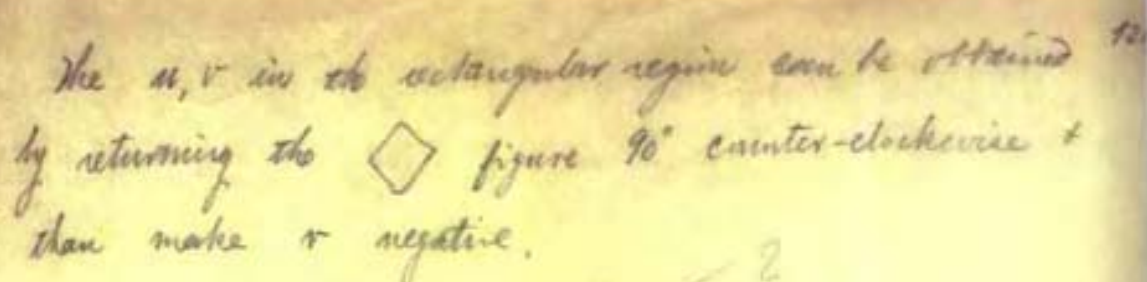 The u, v in th rectangular region can be obtained 12
by returning the ◇ figure 90° counter-clockwise +
than make v negative.
2